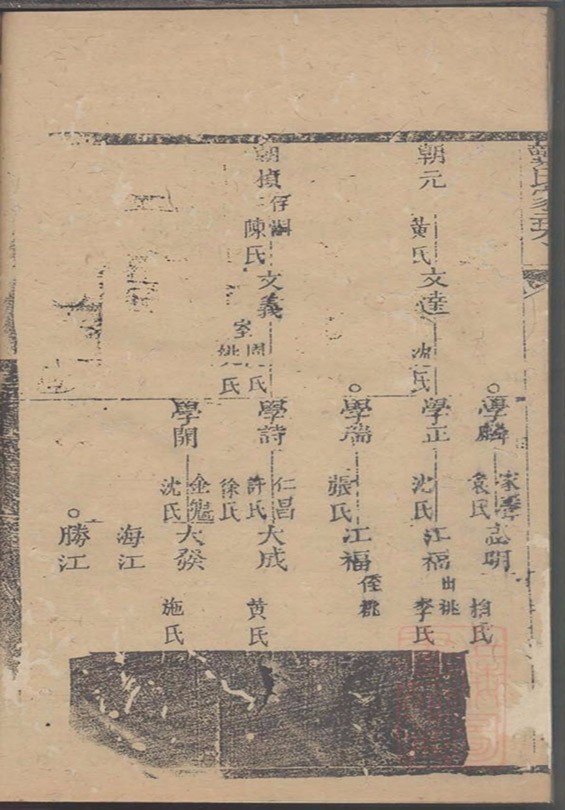 學麟
家善
袁氏
志明
朝元
黃氏
文達
沈氏
學正
沈氏
江福
出祧
李氏
學瑞
張氏
江福
侄祧
朝
陳氏
文義
周氏
姚氏
學詩
仁昌
許氏
徐氏
大成
黃氏
學開
沈氏
大發
施氏
海江
勝江